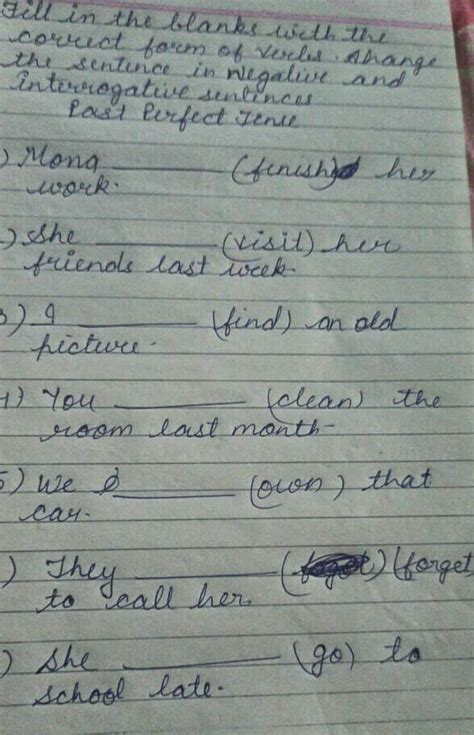 Fill in the blanks with the
correct form of verbs. Change
the sentence in negative and
interrogative sentences
Past Perfect Tense
) Mona ________ (finish) her
work.
.) She ________ (visit) her
friends last week.
3) I ________ (find) an old
picture.
4) You ________ (clean) the
room last month-
5) We ________ (own) that
car.
) They ________ (forget
to call her.
) She ________ (go) to
school late.